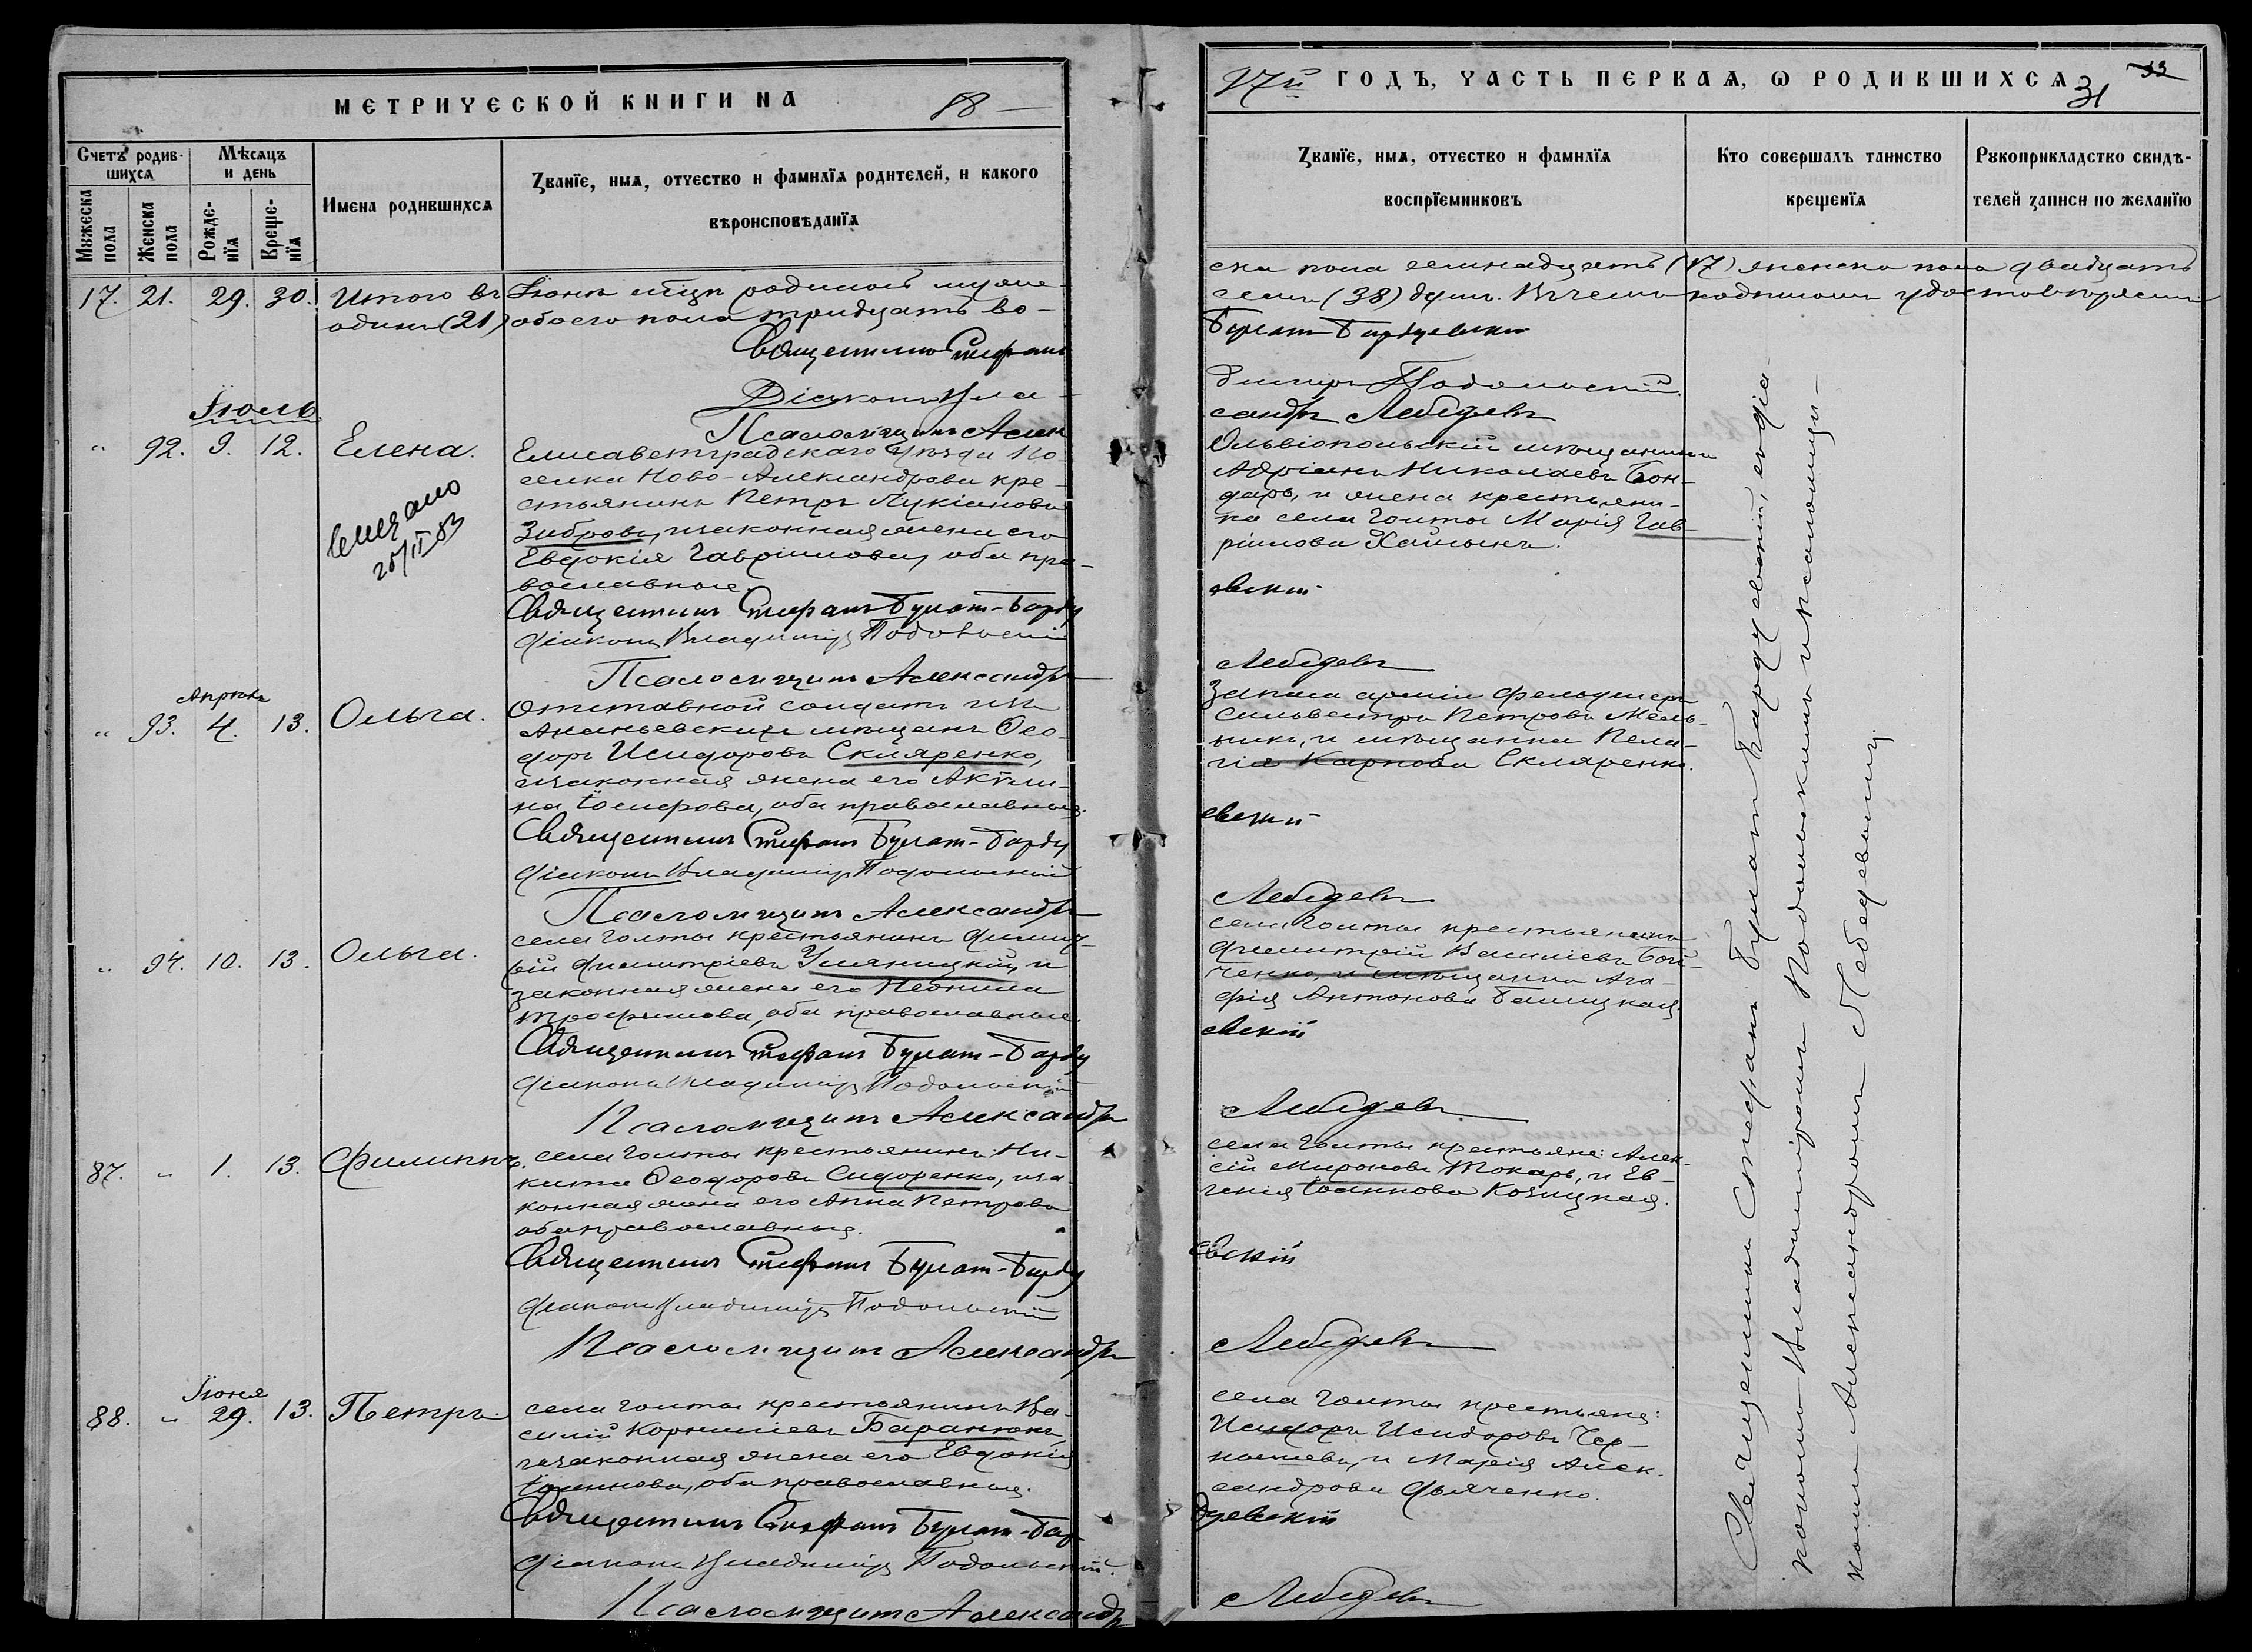 МЕТРИЧЕСКОЙ КНИГИ НА 18
Счетъ родившихся
Мѣсяцъ и день
Имена родившихся
Званїе, имя, отчество и фамилїя родителей, и какого
вѣроисповѣданїя
Мужеска пола
Женска пола
Рожденїя
Крещенїя
17. 21. 29. 30. Итого въ Іюнѣ мѣцѣ родилось муже-
одинъ (21) обоего пола тридцать во-
Священникъ Стефанъ
Діаконъ Вла-
Псаломщикъ Алек
Іюль
" 92. 9. 12. Елена. Елисаветградскаго уѣзда по-
селка Ново-Александровки кре-
стьянинъ Петръ Лукіановъ
Зиброва, и законная жена его
Евдокія Гавріилова, оба пра-
вославные
Священникъ Стефанъ Булат-Барду
Діаконъ Владиміръ Подольскій
Псаломщикъ Александръ
Апрѣля
" 93. 4. 13. Ольга. Отставной солдатъ изъ
Ананьевскихъ мѣщанъ Ѳео-
доръ Исидоровъ Скляренко,
и законная жена его Акили-
на Іосифова, оба православные.
Священникъ Стефанъ Булат-Барду
Діаконъ Владиміръ Подольскій
Псаломщикъ Александръ
" 94. 10. 13. Ольга. села Голты крестьянинъ Димит-
рій Димитріевъ Уманицкій, и
законная жена его Неонила
Трофимова, оба православные.
Священникъ Стефанъ Булат-Барду
Діаконъ Владиміръ Подольскій
Псаломщикъ Александръ
87. " 1. 13. Филиппъ. села Голты крестьянинъ Ни-
кита Ѳеодоровъ Сидоренко, и за-
конная жена его Анна Петрова
оба православные.
Священникъ Стефанъ Булат-Барду
Діаконъ Владиміръ Подольскій
Псаломщикъ Александръ
Іюня
88. " 29. 13. Петръ. села Голты крестьянинъ Ва-
силій Корниліевъ Баранюкъ,
и законная жена его Евдокія
Іоаннова, оба православные.
Священникъ Стефанъ Булат-Бар
Діаконъ Владиміръ Подольскій.
Псаломщикъ Александръ
97й ГОДЪ, ЧАСТЬ ПЕРВАЯ, Ѡ РОДИВШИХСЯ 31
Званїе, имя, отчество и фамилїя
воспрїемниковъ
Кто совершалъ таинство
крещенїя
Рукоприкладство свидѣ-
телей записи по желанїю
ска пола семнадцать (17) женска пола двадцать
семь (38) душъ. В чемъ подписомъ удостовѣряемъ
Булат Бардуевскій
диміръ Подольскій.
сандръ Лебедевъ
Ольвіопольскій мѣщанинъ
Адріанъ Николаевъ Бон-
дарь, и жена крестьяни-
на села Голты Марія Гав-
ріилова
евскій
Лебедевъ
Запаса арміи фельдшеръ
Сильвестръ Петровъ Мель-
никъ, и мѣщанка Пела-
гія Карпова Скляренко.
евскій
Лебедевъ
села Голты крестьянинъ
Димитрій Василіевъ Бой-
ченко, и мѣщанка Ага-
фія Антонова
евскій
Лебедевъ
села Голты крестьяне: Алек-
сій Мироновъ Токарь, и Ев-
генія Іоаннова Козицкая.
евскій
Лебедевъ
села Голты крестьяне:
Исидоръ Исидоровъ Чер-
и Марія Алек-
сандрова Дьяченко.
дуевскій
Лебедевъ
Священникъ Стефанъ Булат Бардуевскій, съ діа-
кономъ Владиміромъ Подольскимъ и псаломщи-
комъ Александромъ Лебедевымъ.